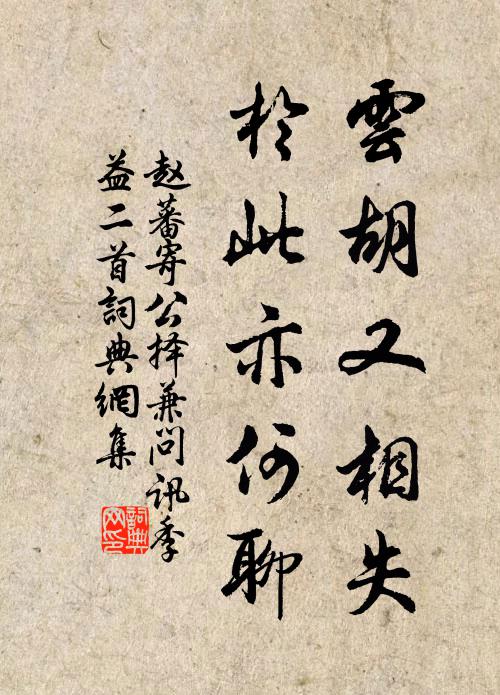 雲胡又相失
於此亦何聊
赵蕃寄公择兼问讯季
益二首詞典網集
詞典網印